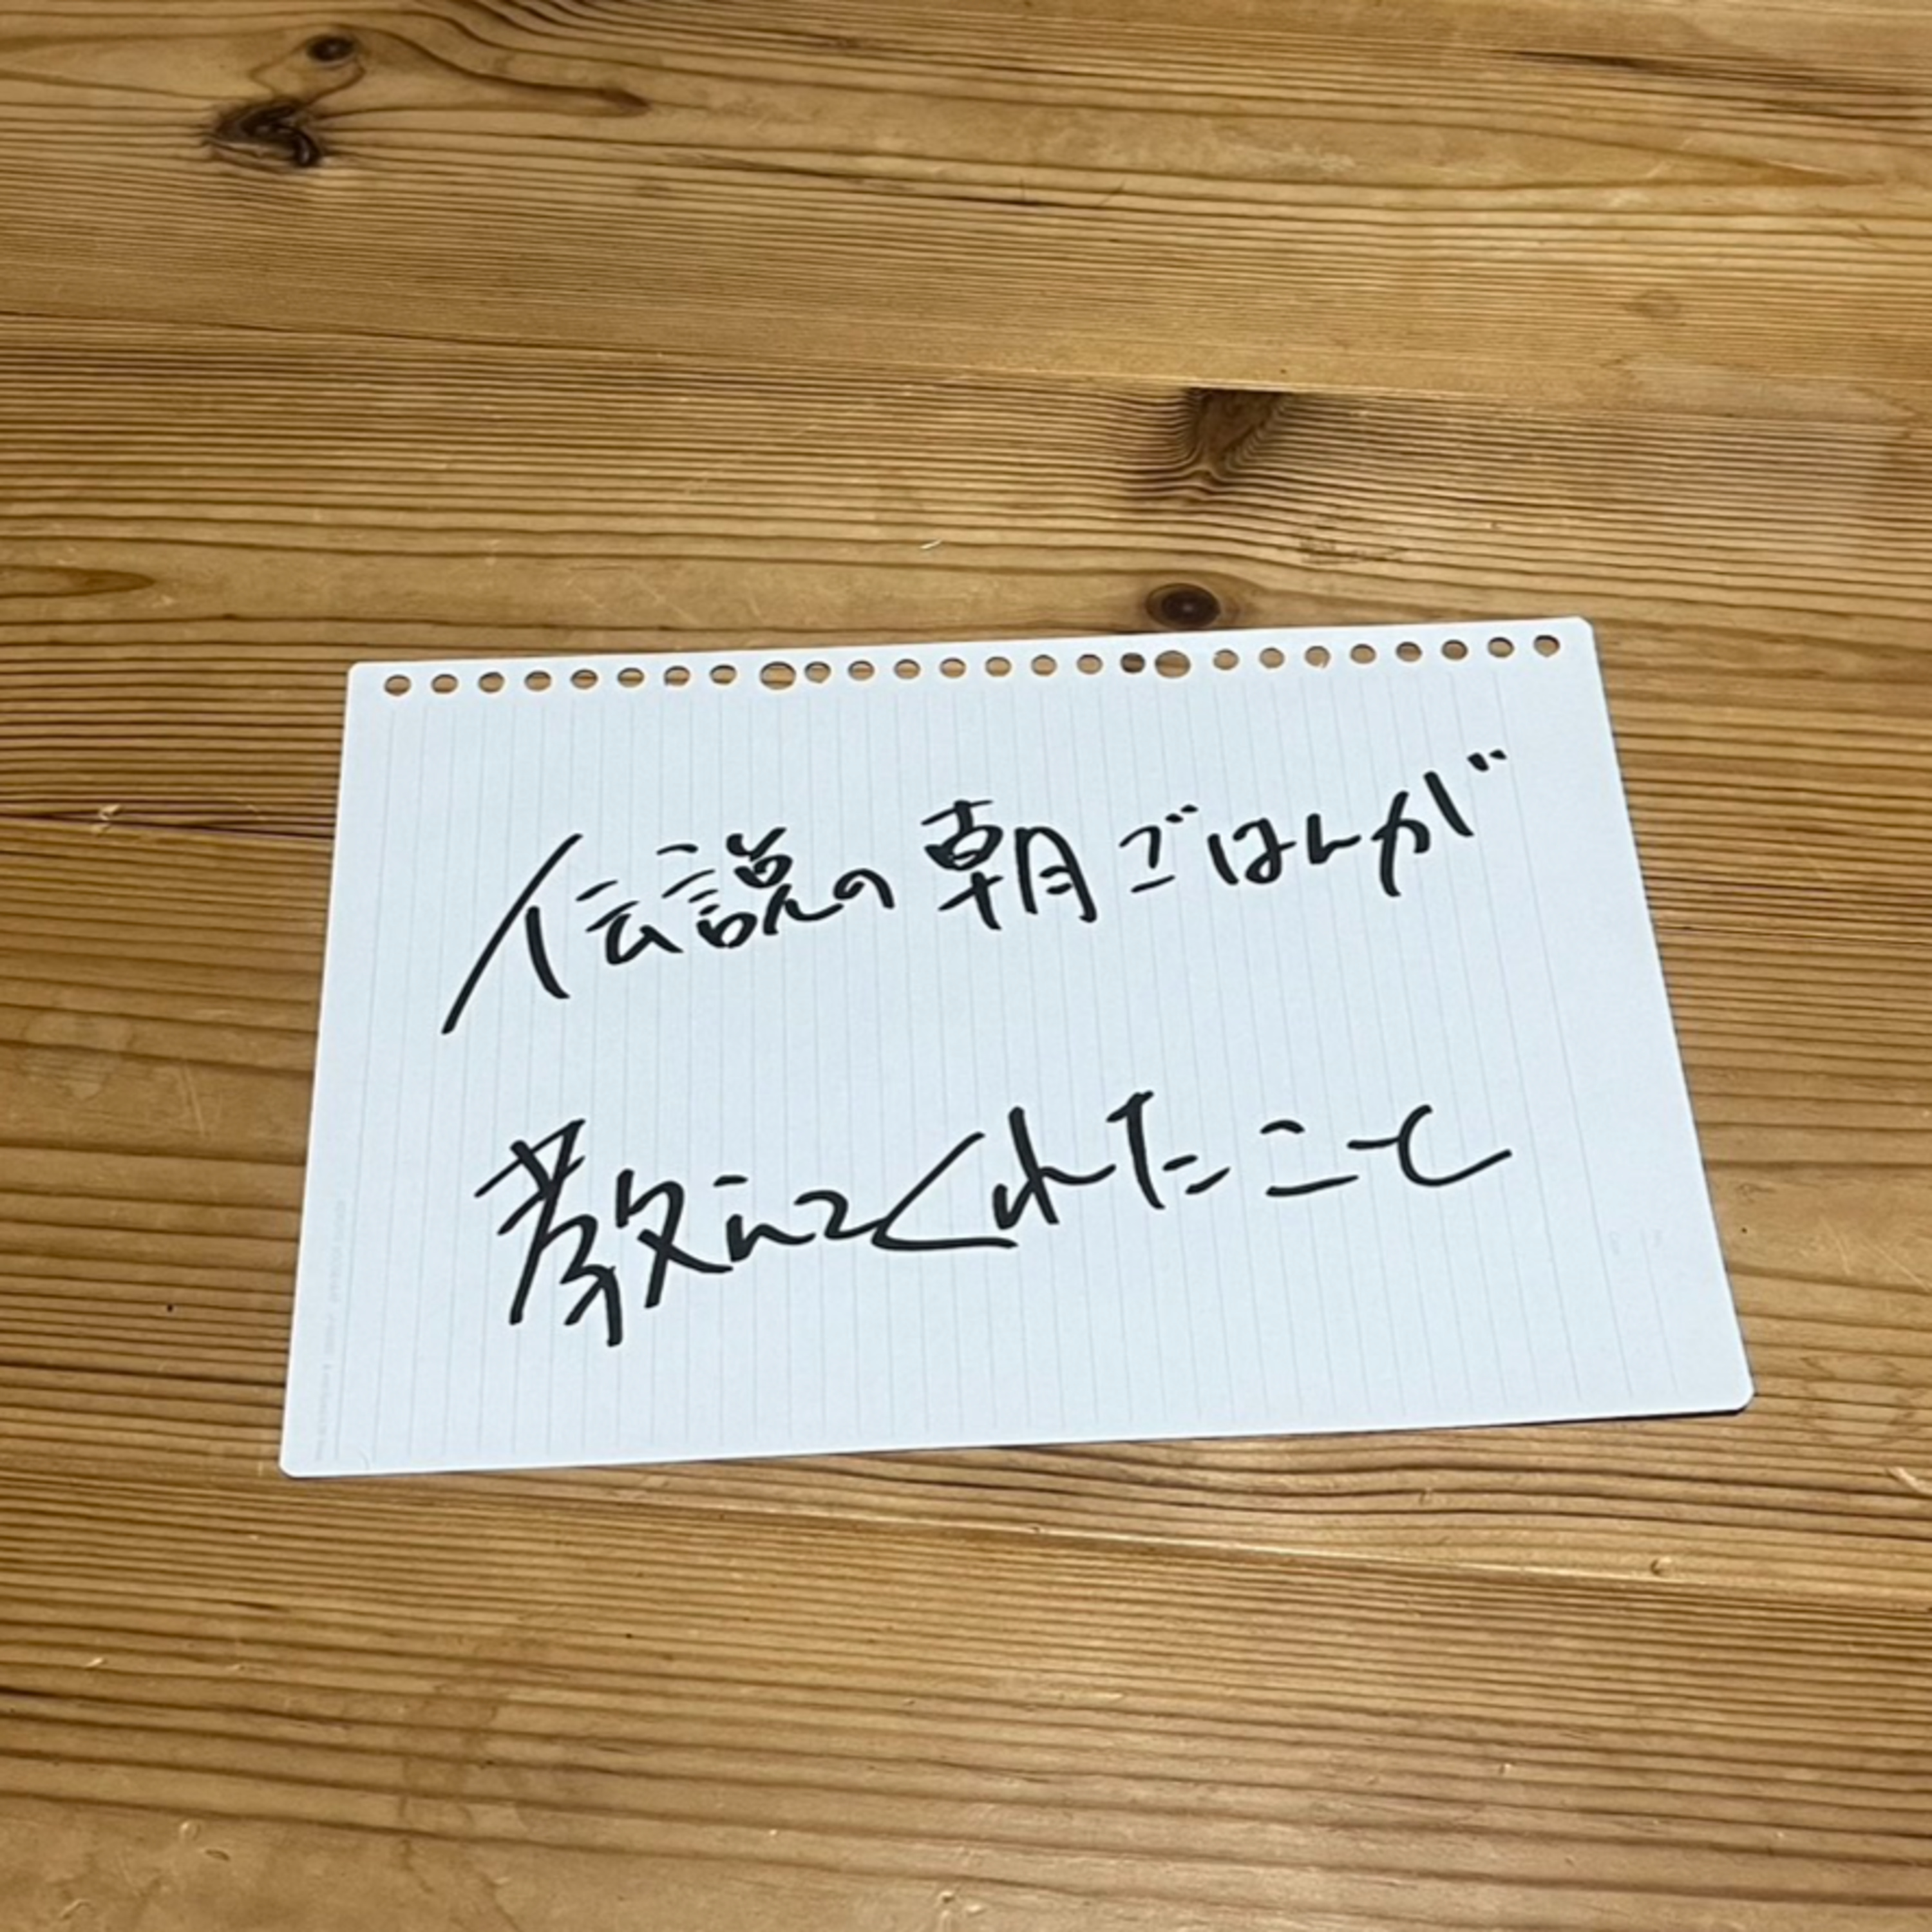 伝説の朝ごはんが
教えてくれたこと